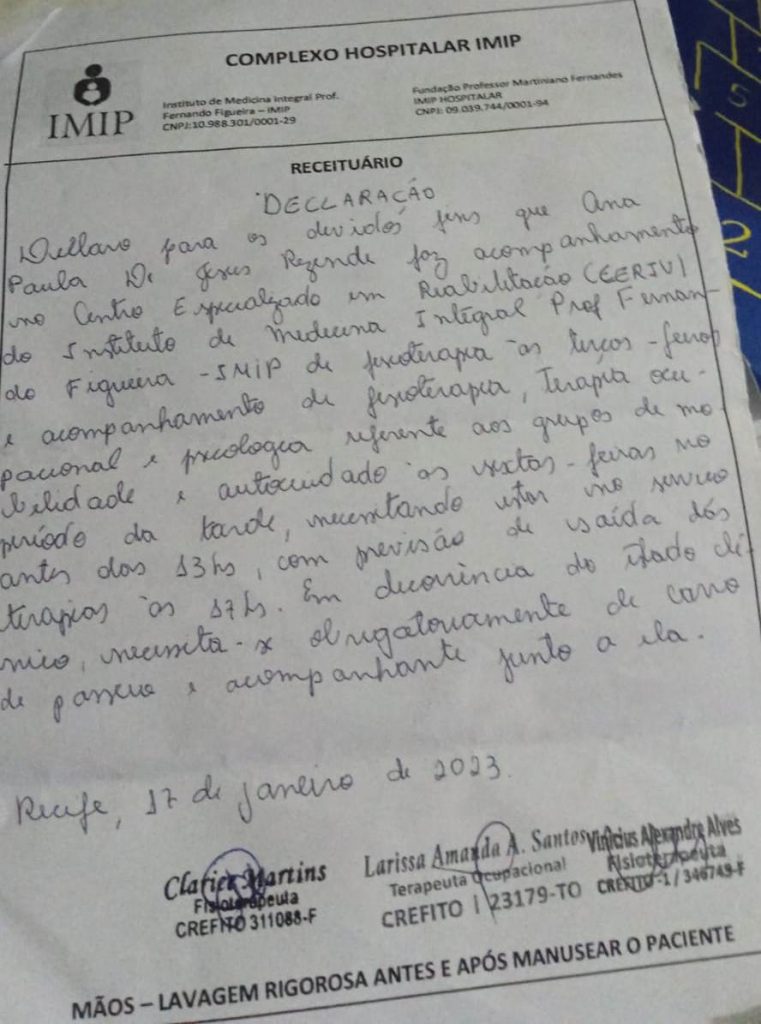 COMPLEXO HOSPITALAR IMIP
IMIP
Instituto de Medicina Integral Prof.
Fernando Figueira – IMIP
CNPJ:10.988.301/0001-29
Fundação Professor Martiniano Fernandes
IMIP HOSPITALAR
CNPJ: 09.039.744/0001-94
RECEITUÁRIO
DECLARAÇÃO
Declaro para os devidos fins que Ana
Paula De Jesus Rezende faz acompanhamento
no Centro Especialzado em Reabilitação (CERIV)
do Instituto de Medicina Integral Prof Fernan-
do Figueira - IMIP de fisioterapia às terças-feiras
e acompanhamento de fisioterapia, Terapia ocu-
pacional e psicologia referente aos grupos de mo-
bilidade e autocuidado às sextas-feiras no
período da tarde, necessitando estar no serviço
antes das 13hs, com previsão de saída dos
terapias às 17hs. Em decorrência do Estado clí-
nico, necessita-se obrigatoriamente de carro
de passeio e acompanhante junto a ela.
Recife, 17 de janeiro de 2023.
Martins
Fisioterapeuta
CREFITO 311088-F
Larissa Amanda A. Santos
Terapeuta Ocupacional
CREFITO 1 23179-TO
Vinícius Alexandre Alves
Fisioterapeuta
CREFITO-1 / 346749-F
MÃOS – LAVAGEM RIGOROSA ANTES E APÓS MANUSEAR O PACIENTE
5
2